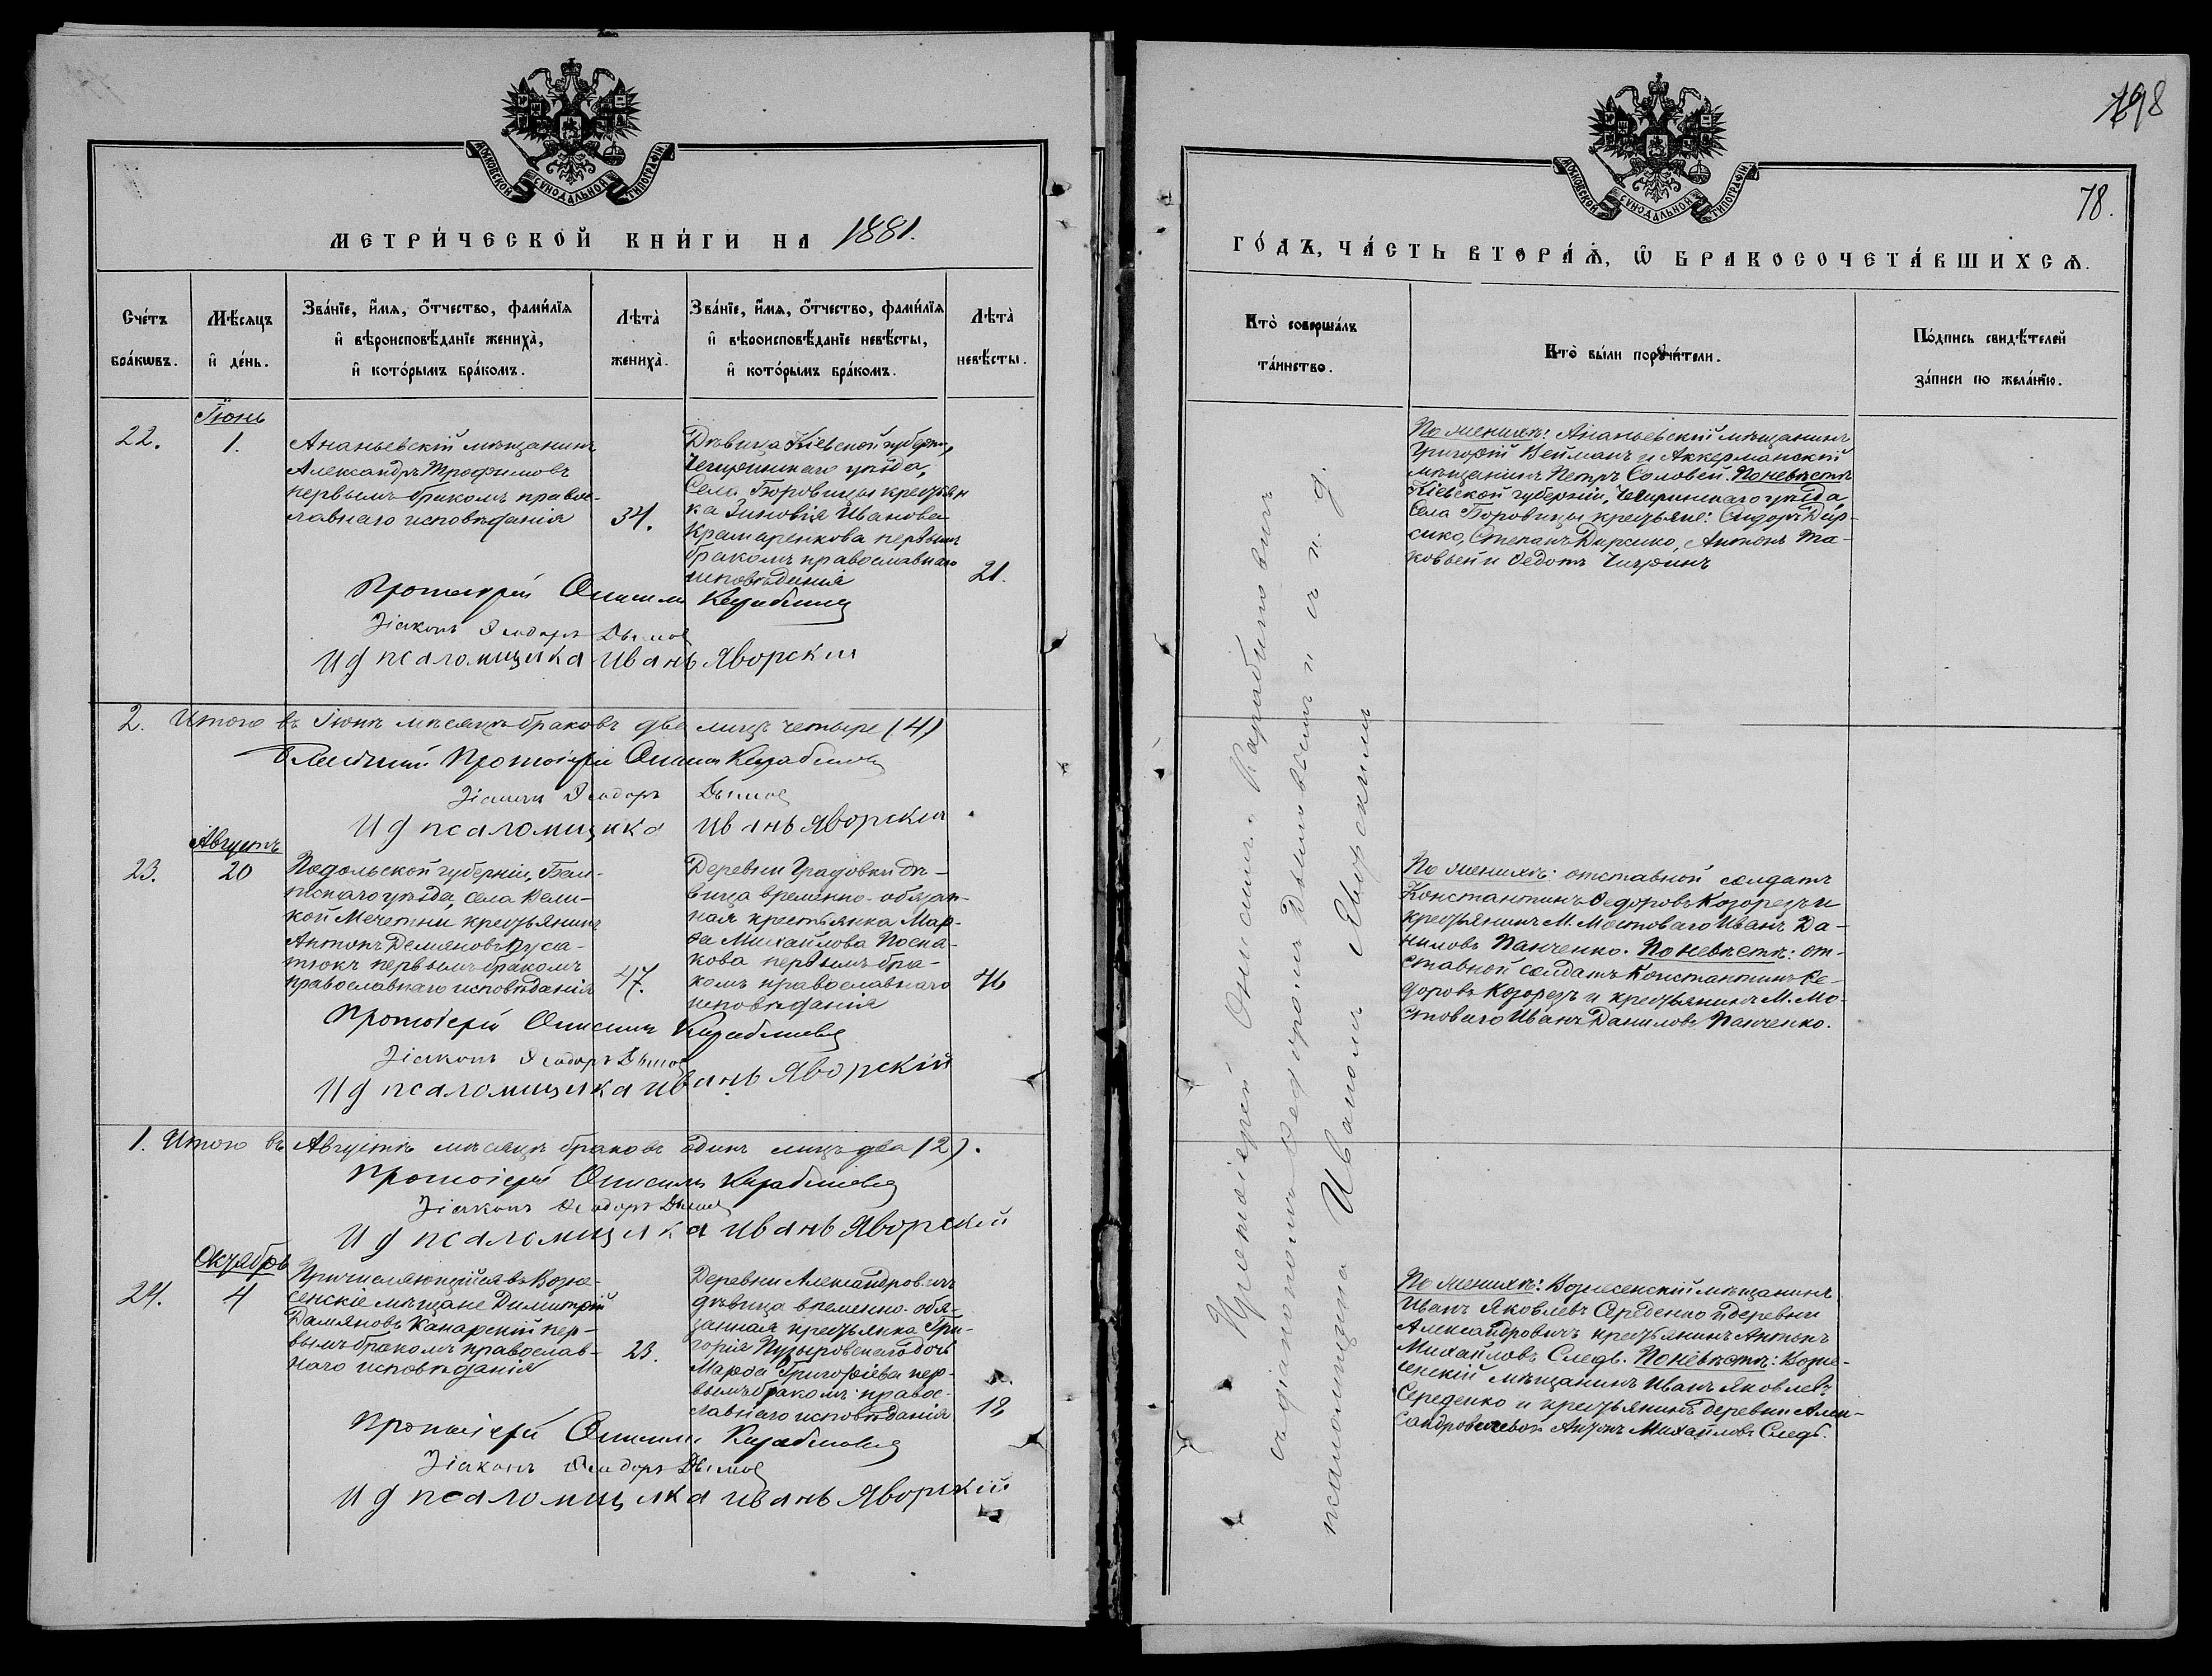 МОСКОВСКОЙ СѴНОДАЛЬНОЙ ТИПОГРАФІИ
МЕТРИ́ЧЕСКОЙ КНИ́ГИ НА 1881.
Сче́тъ бра́кѡвъ.
Мѣ́сяцъ и҆ де́нь.
Зва́нїе, и҆́мѧ, ѻ҆́тчество, фами́лїѧ
и҆ вѣроисповѣ́данїе жениха̀,
и҆ кото́рымъ бра́комъ.
Лѣта̀ жениха̀.
Зва́нїе, и҆́мѧ, ѻ҆́тчество, фами́лїѧ
и҆ вѣроисповѣ́данїе невѣ́сты,
и҆ кото́рымъ бра́комъ.
Лѣта̀ невѣ́сты.
Іюнь
22.
1.
Ананьевскій мѣщанинъ
Александръ Трофимовъ
первымъ бракомъ правос-
лавнаго исповѣданія
34.
Дѣвица Кіевской губерніи,
Чигиринскаго уѣзда,
Села Боровицы крестьян
ка Зиновія Иванова
Крамаренкова первымъ
бракомъ православнаго
исповѣданія
21.
Протоіерей Онисимъ
Діаконъ Ѳеодоръ Дымов
И д псаломщика Иванъ Яворскій
2. Итого въ Іюнѣ мѣсяцѣ браковъ два лицъ четыре (4)
Протоіерей Онисим
Діаконъ Ѳеодоръ Дымов
И д псаломщика Иванъ Яворскій
Августъ
23.
20
Подольской губерніи, Бал-
тскаго уѣзда, села Вели-
кой Мечетни крестьянинъ
Антонъ Демяновъ Руса-
тюкъ первымъ бракомъ
православнаго исповѣданія
47.
Деревни Градовки дѣ-
вица временно-обязан-
ная крестьянка Мар-
ѳа Михайлова
кова первымъ бра-
комъ православнаго
исповѣданія
46
Протоіерей Онисимъ
Діаконъ Ѳеодоръ Дымов
И д псаломщика Иванъ Яворскій
1. Итого въ Августѣ мѣсяцѣ браковъ одинъ лицъ два (2).
Протоіерей Онисимъ
Діаконъ Ѳеодоръ Дымов
И д псаломщика Иванъ Яворскій
Октябрь
24.
4
Причисляющійся въ Возне-
сенскіе мѣщане Димитрій
Даміяновъ Канарскій пер-
вымъ бракомъ православ-
наго исповѣданія
23.
Деревни Александровичъ
дѣвица временно-обя-
занная крестьянка Гри-
горія Пузыровскаго дочь
Марѳа Григоріева пер-
вымъ бракомъ правос-
лавнаго исповѣданія
18
Протоіерей Онисимъ
Діаконъ Ѳеодоръ Дымов
И д псаломщика Иванъ Яворскій
МОСКОВСКОЙ СѴНОДАЛЬНОЙ ТИПОГРАФІИ
78.
ГО́ДЪ, ЧА́СТЬ ВТОРА́Ѧ, Ѡ҆ БРАКОСОЧЕТА́ВШИХСѦ.
Кто̀ соверша́лъ та́инство.
Кто̀ бы́ли порꙋчи́тели.
По́дпись свидѣ́телей за́писи по жела́нїю.
Протоіерей Онисимъ Карабиновичъ
съ діакономъ Ѳедоромъ Дымовымъ и съ и. д.
псаломщика Иваномъ Яворскимъ
По женихѣ: Ананьевскій мѣщанинъ
Григорій Нейманъ и Аккерманскій
мѣщанинъ Петръ Соловей. По невѣстѣ
Кіевской губерніи, Чигиринскаго уѣзда
Села Боровицы крестьяне: Сидоръ Дир-
сико, Степанъ Дирсико, Антонъ Та-
ковый и Ѳедотъ Чигринъ
По женихѣ: отставной солдатъ
Константинъ Ѳедоровъ Козорезъ и
крестьянинъ М. Мостоваго Иванъ Да-
ниловъ Панченко. По невѣстѣ: от-
ставной солдатъ Константинъ Ѳе-
доровъ Козорезъ и крестьянинъ М. Мо-
стоваго Иванъ Даниловъ Панченко.
По женихѣ: Вознесенскій мѣщанинъ
Иванъ Яковлевъ Середенко и деревни
Александровичъ крестьянинъ Антонъ
Михайловъ Следь. По невѣстѣ: Возне-
сенскій мѣщанинъ Иванъ Яковлевъ
Середенко и крестьянинъ деревни Алек-
Антонъ Михайловъ Следь.